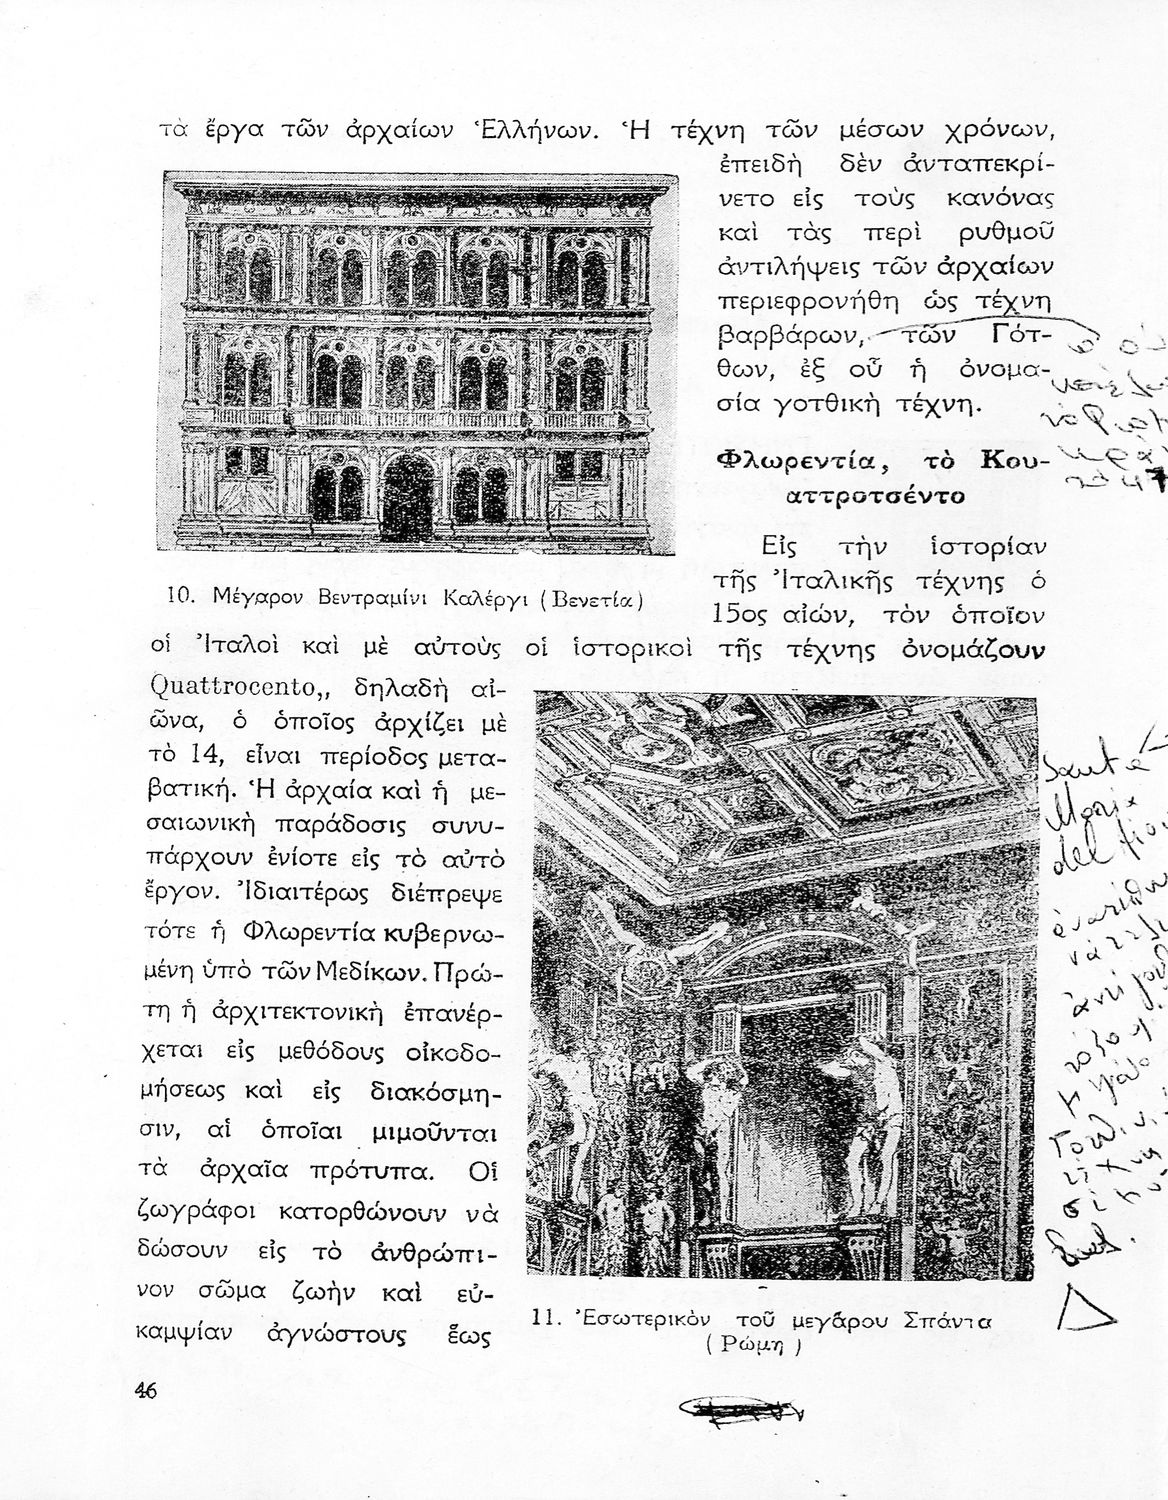 τὰ ἔργα τῶν ἀρχαίων Ἑλλήνων. Ἡ τέχνη τῶν μέσων χρόνων,
ἐπειδὴ δὲν ἀνταπεκρί-
νετο εἰς τοὺς κανόνας
καὶ τὰς περὶ ρυθμοῦ
ἀντιλήψεις τῶν ἀρχαίων
περιεφρονήθη ὡς τέχνη
βαρβάρων, τῶν Γότ-
θων, ἐξ οὗ ἡ ὀνομα-
σία γοτθικὴ τέχνη.
10. Μέγαρον Βεντραμίνι Καλέργι (Βενετία)
Φλωρεντία, τὸ Κου-
αττροτσέντο
Εἰς τὴν ἱστορίαν
τῆς Ἰταλικῆς τέχνης ὁ
15ος αἰών, τὸν ὁποῖον
οἱ Ἰταλοὶ καὶ μὲ αὐτοὺς οἱ ἱστορικοὶ τῆς τέχνης ὀνομάζουν
Quattrocento,, δηλαδὴ αἰ-
ῶνα, ὁ ὁποῖος ἀρχίζει μὲ
τὸ 14, εἶναι περίοδος μετα-
βατική. Ἡ ἀρχαία καὶ ἡ με-
σαιωνικὴ παράδοσις συνυ-
πάρχουν ἐνίοτε εἰς τὸ αὐτὸ
ἔργον. Ἰδιαιτέρως διέπρεψε
τότε ἡ Φλωρεντία κυβερνω-
μένη ὑπὸ τῶν Μεδίκων. Πρώ-
τη ἡ ἀρχιτεκτονικὴ ἐπανέρ-
χεται εἰς μεθόδους οἰκοδο-
μήσεως καὶ εἰς διακόσμη-
σιν, αἱ ὁποῖαι μιμοῦνται
τὰ ἀρχαῖα πρότυπα. Οἱ
ζωγράφοι κατορθώνουν νὰ
δώσουν εἰς τὸ ἀνθρώπι-
νον σῶμα ζωὴν καὶ εὐ-
καμψίαν ἀγνώστους ἕως
11. Ἐσωτερικὸν τοῦ μεγάρου Σπάντα
(Ρώμη)
46
Santa
Maria
del